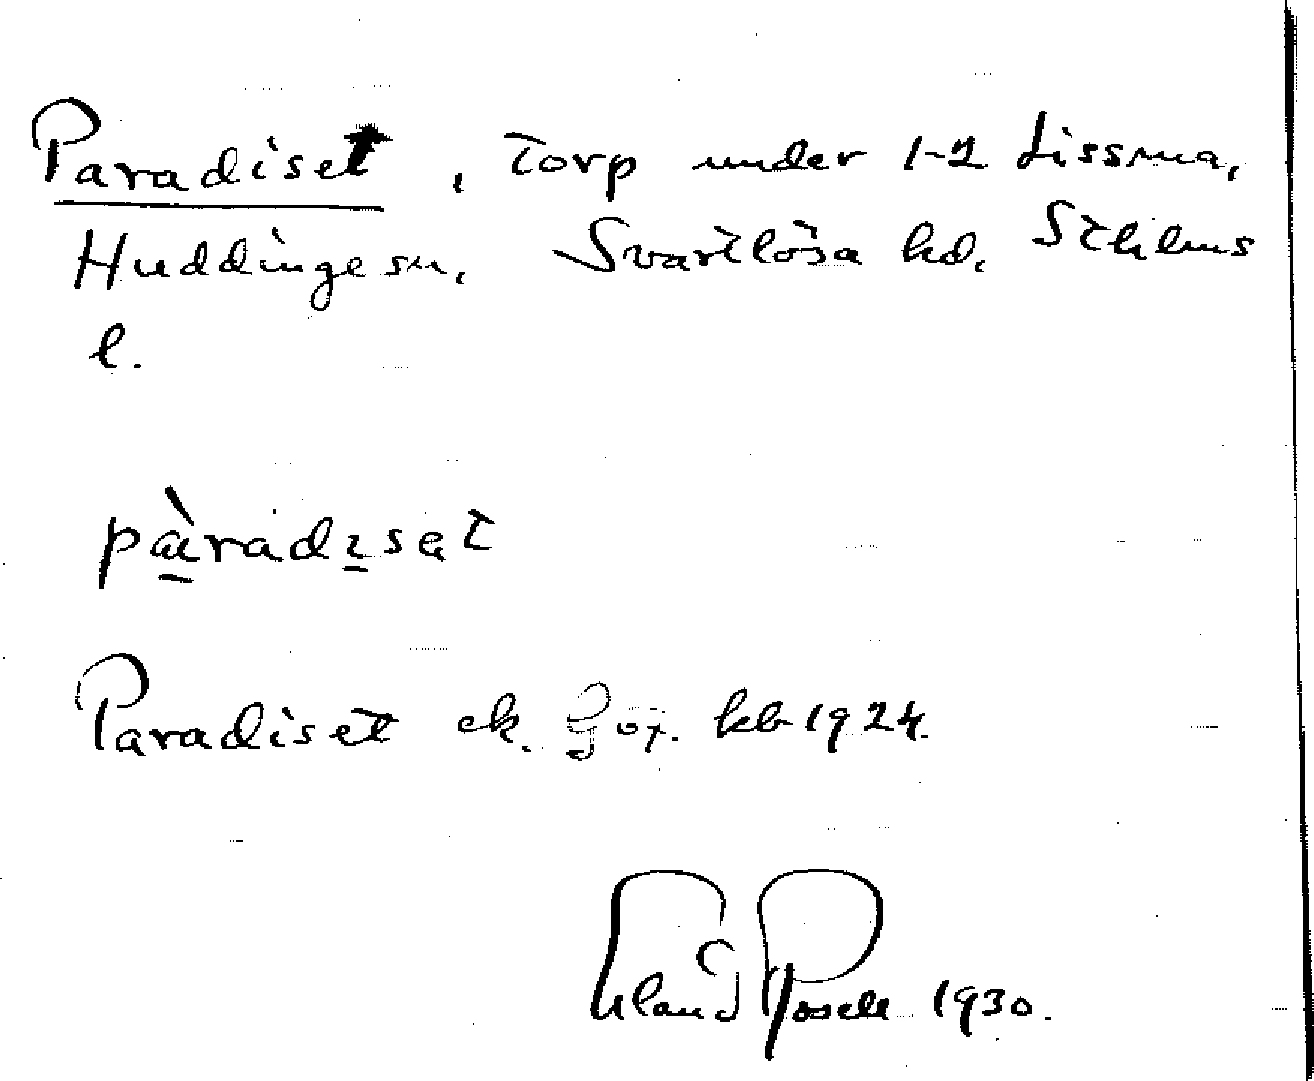 Paradiset, Torp under 1-2 Lissma,
Huddinge sn. Svartlösa hd. Sthlms
l.
pàradıset
Paradiset ek. kb 1924.
Posse 1930.